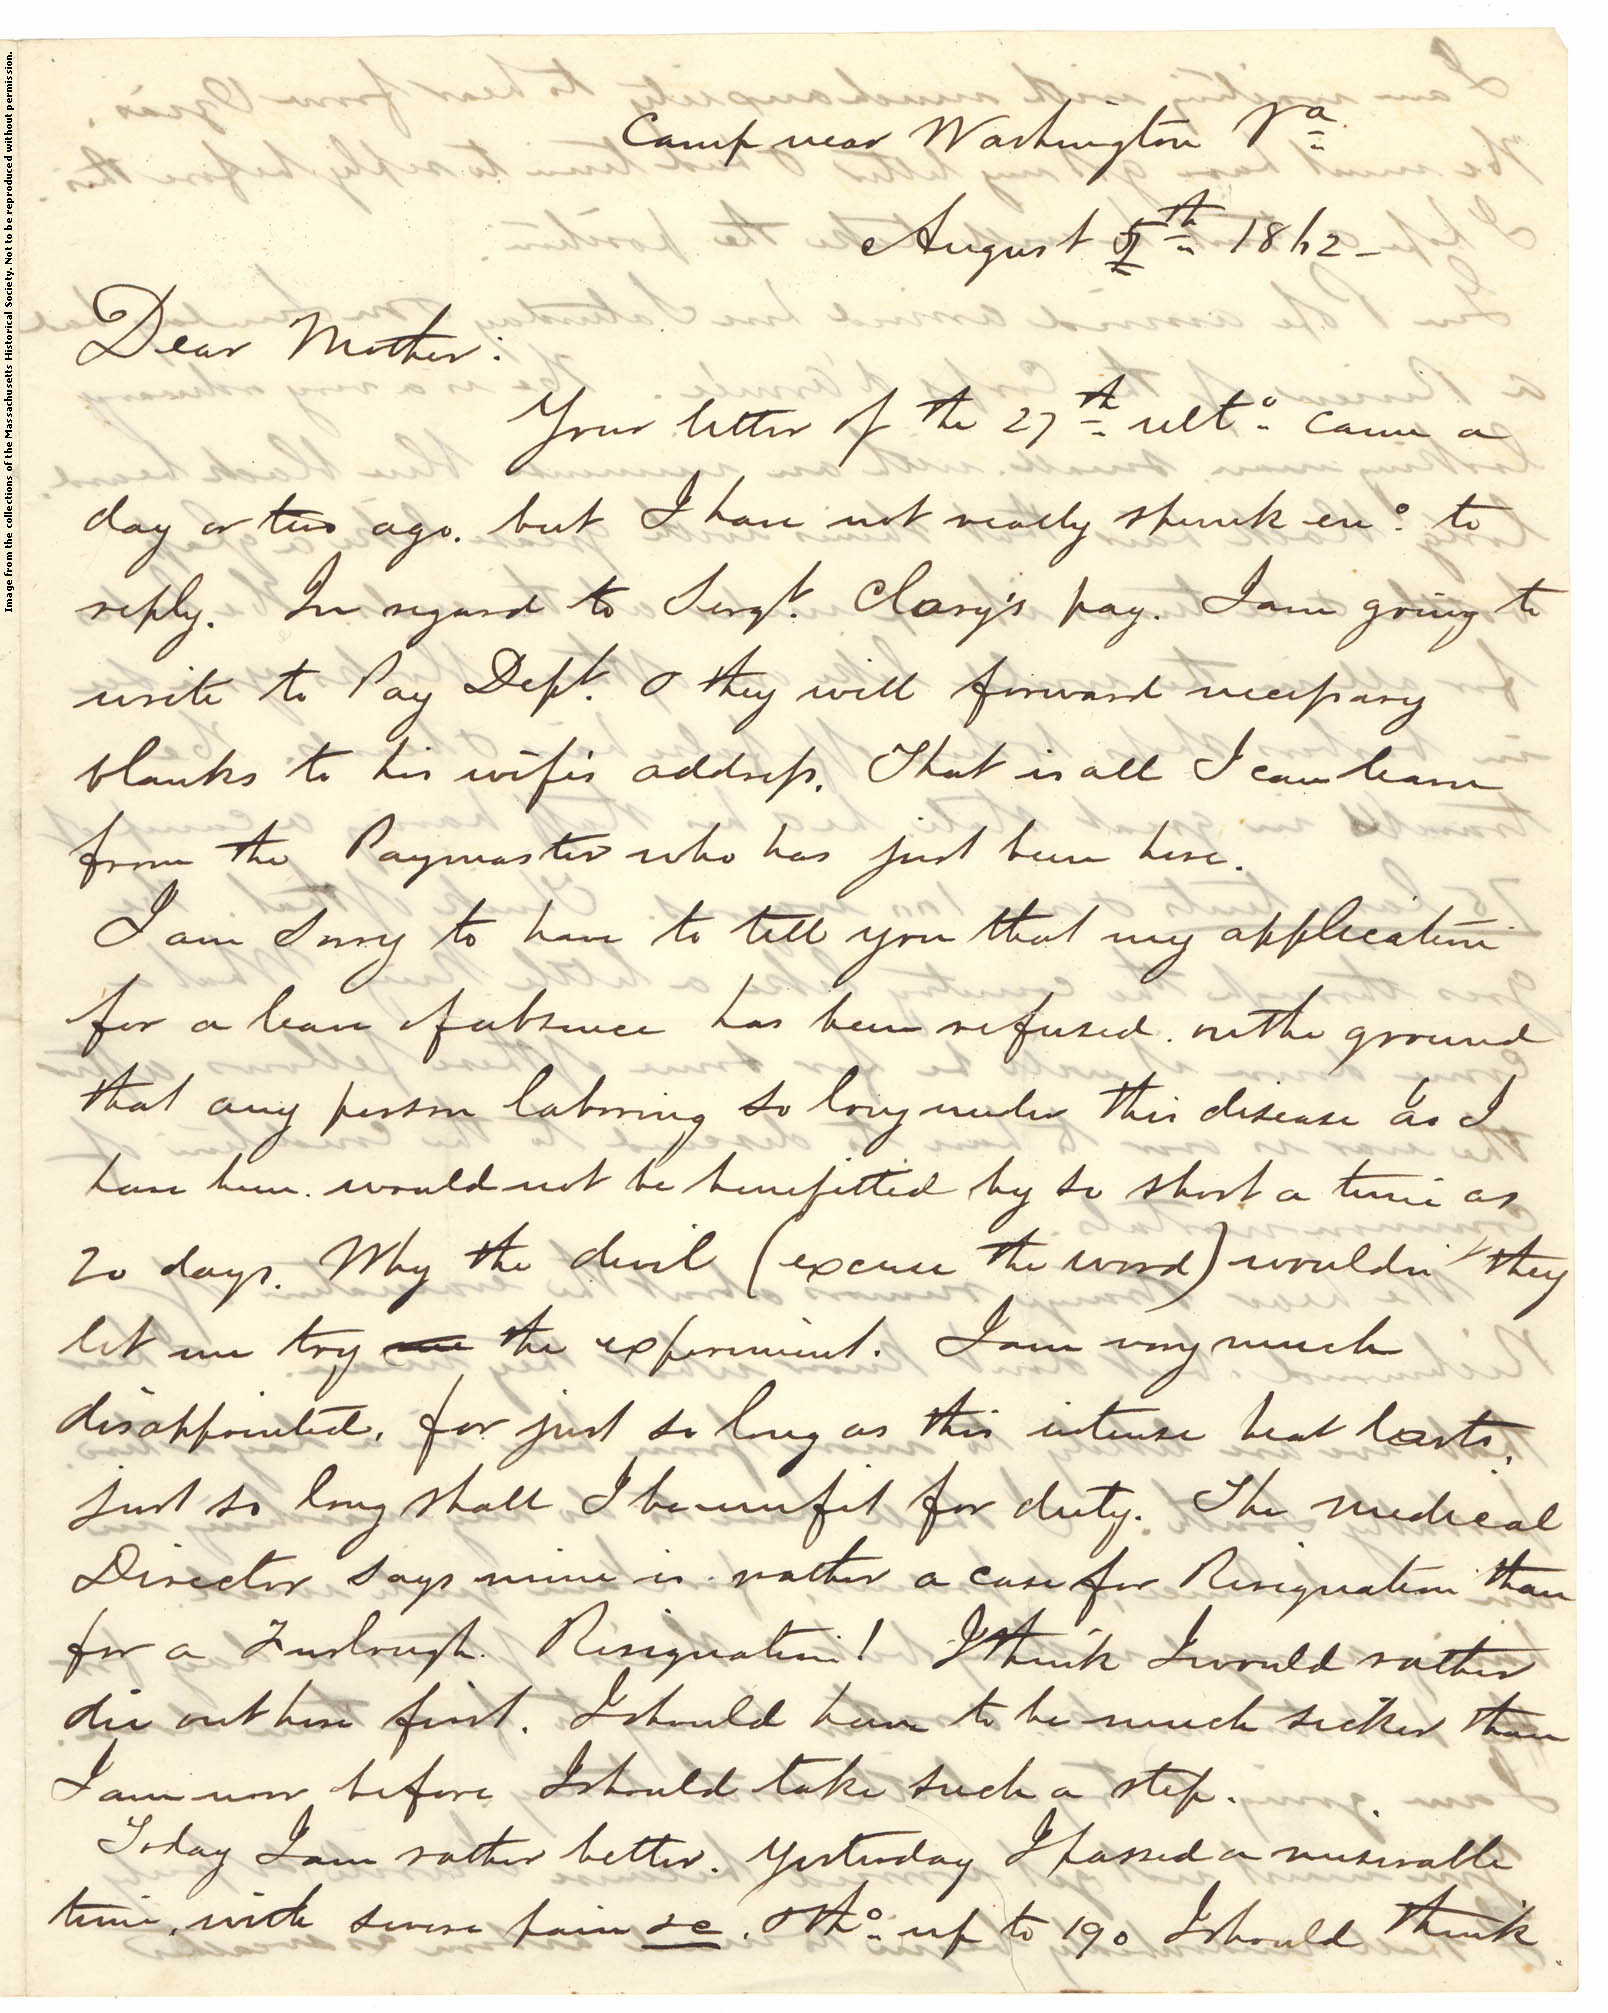 Image from the collections of the Massachusetts Historical Society. Not to be reproduced without permission.
Camp near Washington Va.
August 5th 1862-
Dear Mother:
Your letter of the 27th ulto. came a
day or two ago. but I have not really spunk eno. to
reply. In regard to Sergt. Clary's pay. I am going to
write to Pay Dept. & they will forward necessary
blanks to his wife's address. That is all I can learn
from the Paymaster who has just been here.
I am sorry to have to tell you that my application
for a leave of absence has been refused. on the ground
that any person laboring so long under this disease as I
have been. would not be benefitted by so short a time as
20 days. Why the devil (excuse the word) wouldn't they
let me try the experiment. I am very much
disappointed. for just so long as this intense heat lasts,
just so long shall I be unfit for duty. The medical
Director says mine is rather a case for Resignation than
for a Furlough. Resignation! I think I would rather
die out here first. I should have to be much sicker than
I am now before I should take such a step.
Today I am rather better. Yesterday I passed a miserable
time, with severe pain &c. & tho. up to 190 I should think